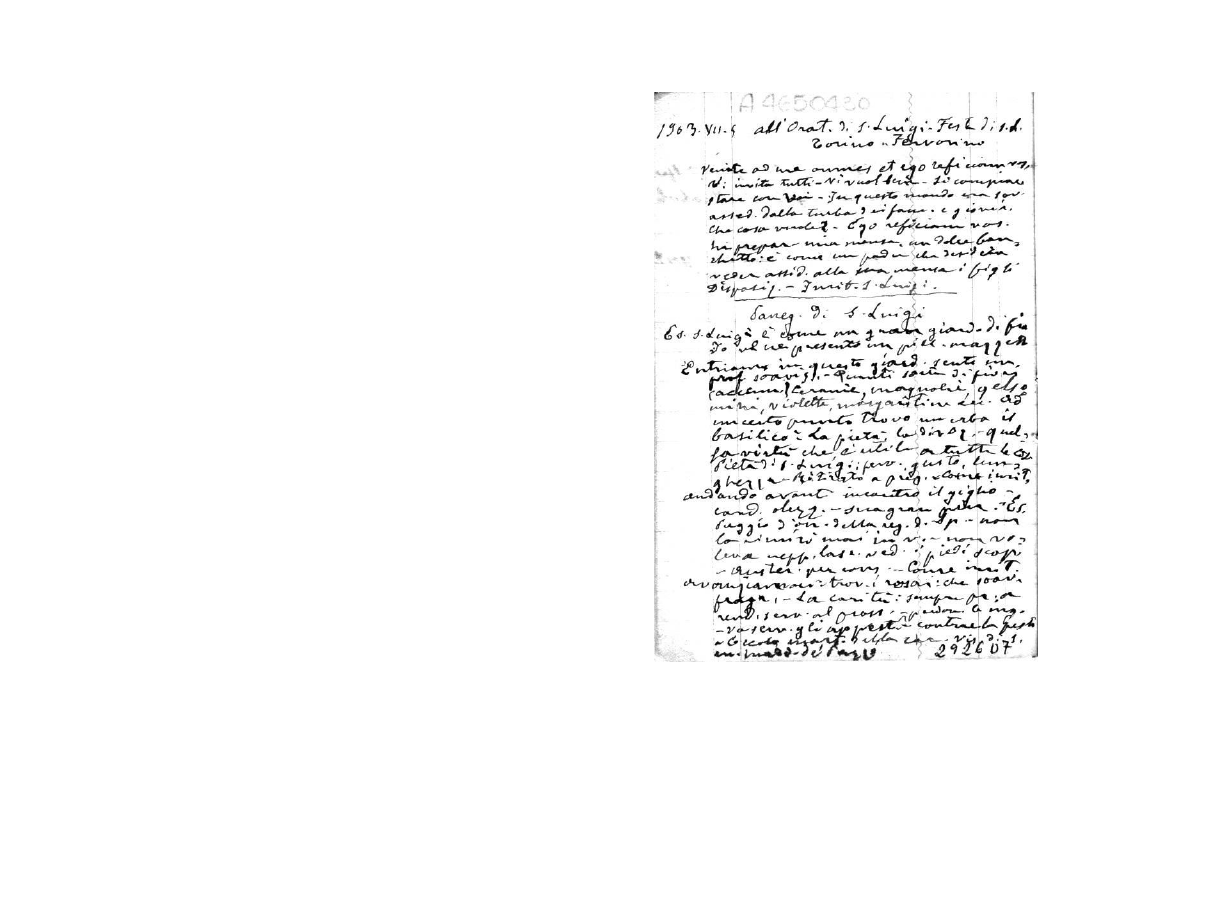 A4650420
1903.VII-5 all'Orat. di S. Luigi - Festa di S.L.
Torino - Fervorino
Venite ad me omnes et ego reficiam vos
Vi invita tutti - Vi vuol - Si compiace
stare con Voi - In questo mondo era sov
assed. dalla turba dei fanc. e giovin.
Che cosa - Ego reficiam vos.
ha prepar. una mensa, un dolce ban-
chetto: è come un padre che desidera
veder assid. alla sua mensa i figli
Disposiz. - Invit. S. Luigi.
Paneg. di S. Luigi
Es. S. Luigi è come un gran giard. di fio
Io ve ne presento un picc. mazzett
Entriamo in questo giard. sento un
prof. soaviss. - Quanti sorta di fiori
Geranie, magnolie, gelso
mini, violette, margaritine Ad
un certo punto trovo un erba il
basilico - La pietà, la divoz. - quel-
la virtù che è utile a tutte le
Pietà di S. Luigi: ferv. gusto, lun-
ghezza - a preg. - Come imit.
andando avanti incontro il giglio -
cand. olezz. - sua gran - Es.
Paggio d'on. della reg. di Sp. - non
la rimirò mai in v. - non vo-
leva nepp. lasc. ved. i piedi scop
- Auster. per cons. - Come imit.
avanziamoci: trov. i rosai: che soav.
fragr. - La carità: sempre
rend. serv. al pross. - perdon. le ing.
- Va serv. gli appestati contrae la peste
mart. della car. - Vis. di S.
M. Madd. de' Pazzi
292607